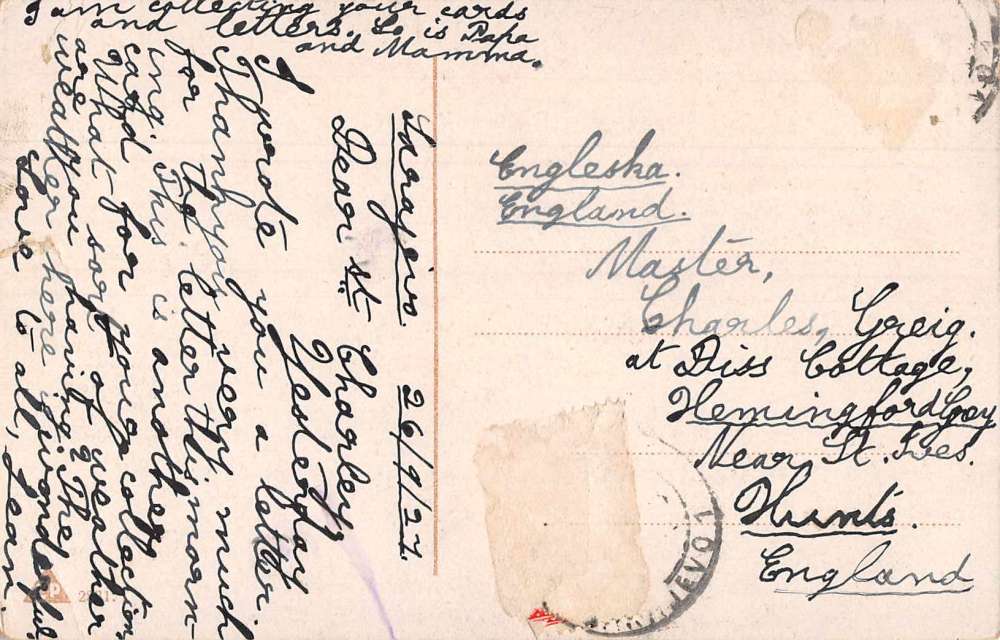 I am collecting your cards
and letters. So is Papa
and Mamma.
Sarajevo. 26/9/27
Dear St Charley
Yesterday
I wrote you a letter.
Thankyou very much
for the letter this morn-
ing. This is another
card for your collection,
What sort of weather
are you having? The
weather here is wonderful.
Love to all, Jean.
Engleska.
England.
Master,
Charles, Greig.
at Diss Cottage,
Hemingford Grey
Near St. Ives.
Hunts.
England